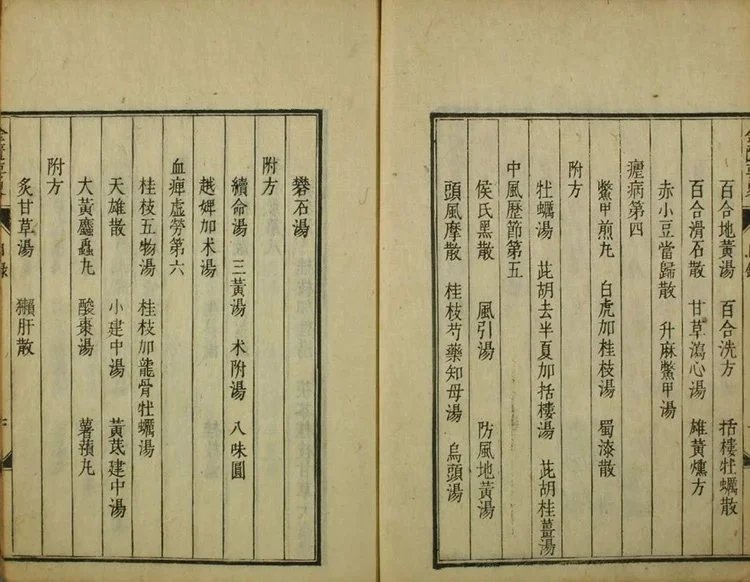 百合地黃湯 百合洗方 括樓牡蠣散
百合滑石散 甘草瀉心湯 雄黃熏方
赤小豆當歸散 升麻鱉甲湯
瘧病第四
鱉甲煎丸 白虎加桂枝湯 蜀漆散
附方
牡蠣湯 茈胡去半夏加括樓湯 茈胡桂薑湯
中風歷節第五
侯氏黑散 風引湯 防風地黃湯
頭風摩散 桂枝芍藥知母湯 烏頭湯
礬石湯
附方
續命湯 三黃湯 术附湯 八味圓
越婢加术湯
血痺虛勞第六
桂枝五物湯 桂枝加龍骨牡蠣湯
天雄散 小建中湯 黃芪建中湯
大黃䗪蟲丸 酸棗湯 薯蕷丸
附方
炙甘草湯 獺肝散